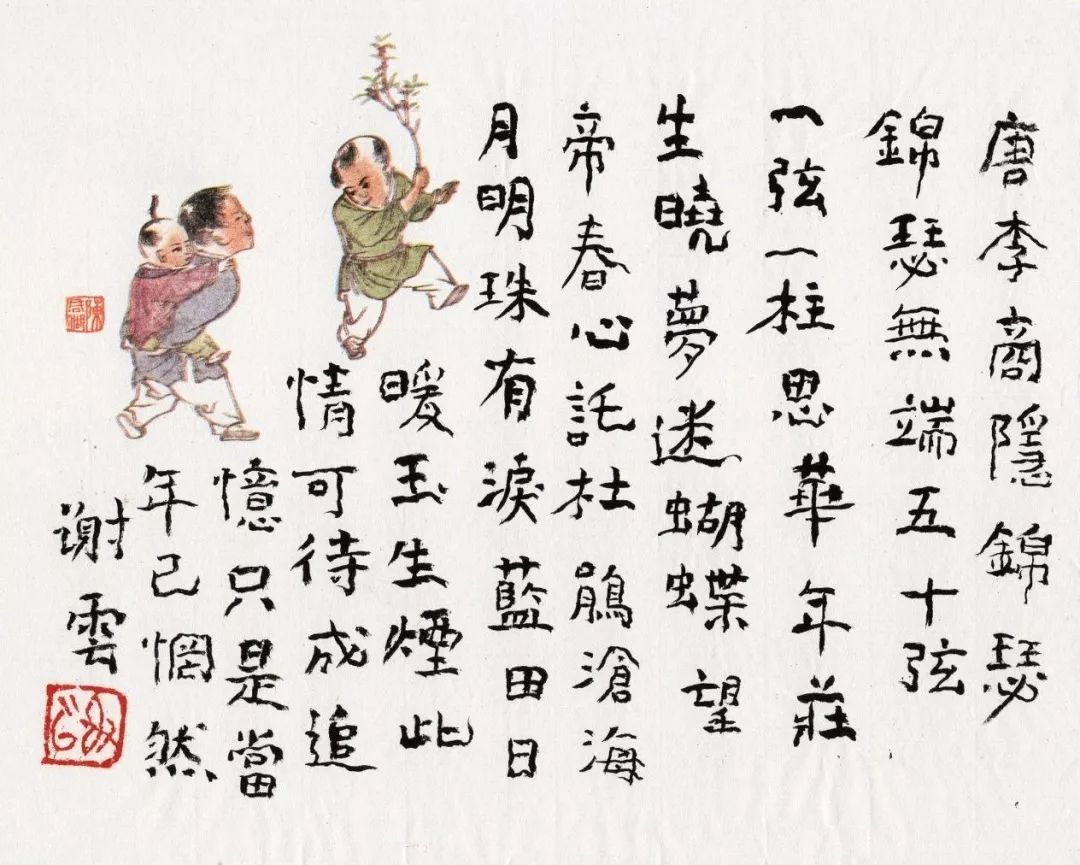 唐李商隱錦瑟
錦瑟無端五十弦
一弦一柱思華年莊
生曉夢迷蝴蝶望
帝春心託杜鵑滄海
月明珠有淚藍田日
暖玉生煙此
情可待成追
憶只是當
年已惘然
謝雲